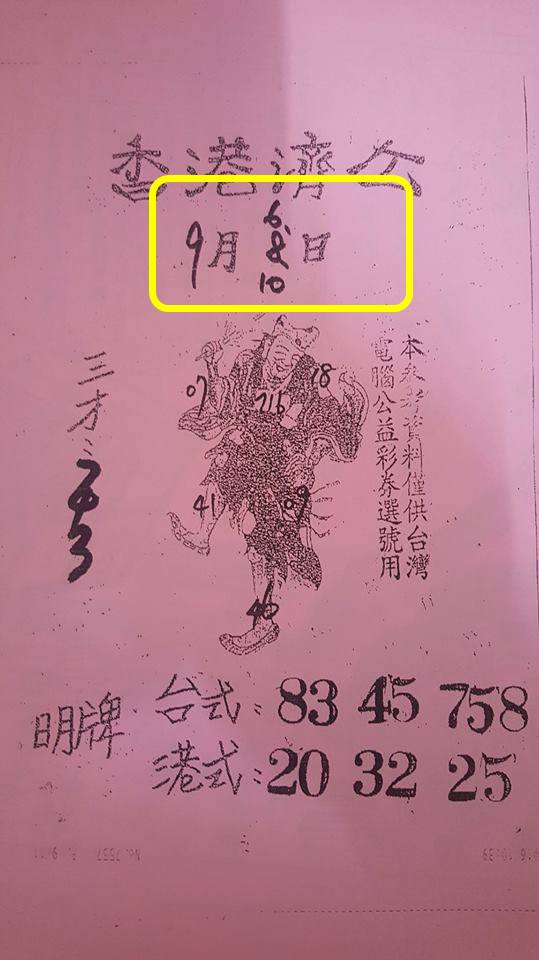 香港濟公
9月 6. 8. 10 日
07
716
18
41
09
46
三才:
743
本參考資料僅供台灣
電腦公益彩券選號用
明牌
台式: 83 45 758
港式: 20 32 25
No.7557 P. 9/11
016 10:39